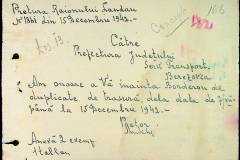 Pretura Raionului Landau
No 1361 din 15 Decembrie 1943.-
166
Către
Prefectura Județului
Serv. Transport,
Berezovca
Am onoare a Vă înainta Borderou de
duplicate de trăsură, dela data de
până la 15 Decembrie 1943.-
Pretor,
Anexă 2 exemp.